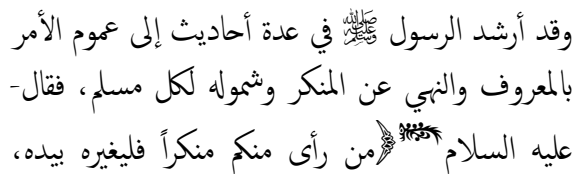 وقد أرشد الرسول ﷺ في عدة أحاديث إلى عموم الأمر
بالمعروف والنهي عن المنكر وشموله لكل مسلم، فقال-
عليه السلام ﴿من رأى منكم منكراً فليغيره بيده،